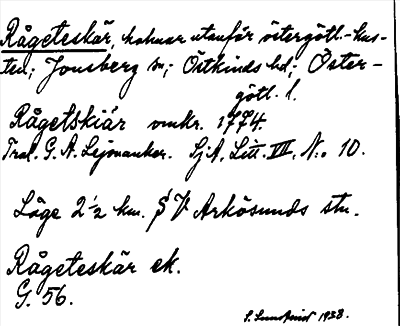 Rågeteskär, holmar utanför östergötl.-kus-
ten; Jonsberg sn; Östkinds hd; Öster-
götl. l.
Rågetskiär omkr. 1774.
Tral. G. A. Lejonanker. Sj.A. Litt. VII. N:o 10.
Läge 2 1/2 km. S V Arkösunds stn.
Rågeteskär ek.
G. 56.
S. Lundqvist 1938.